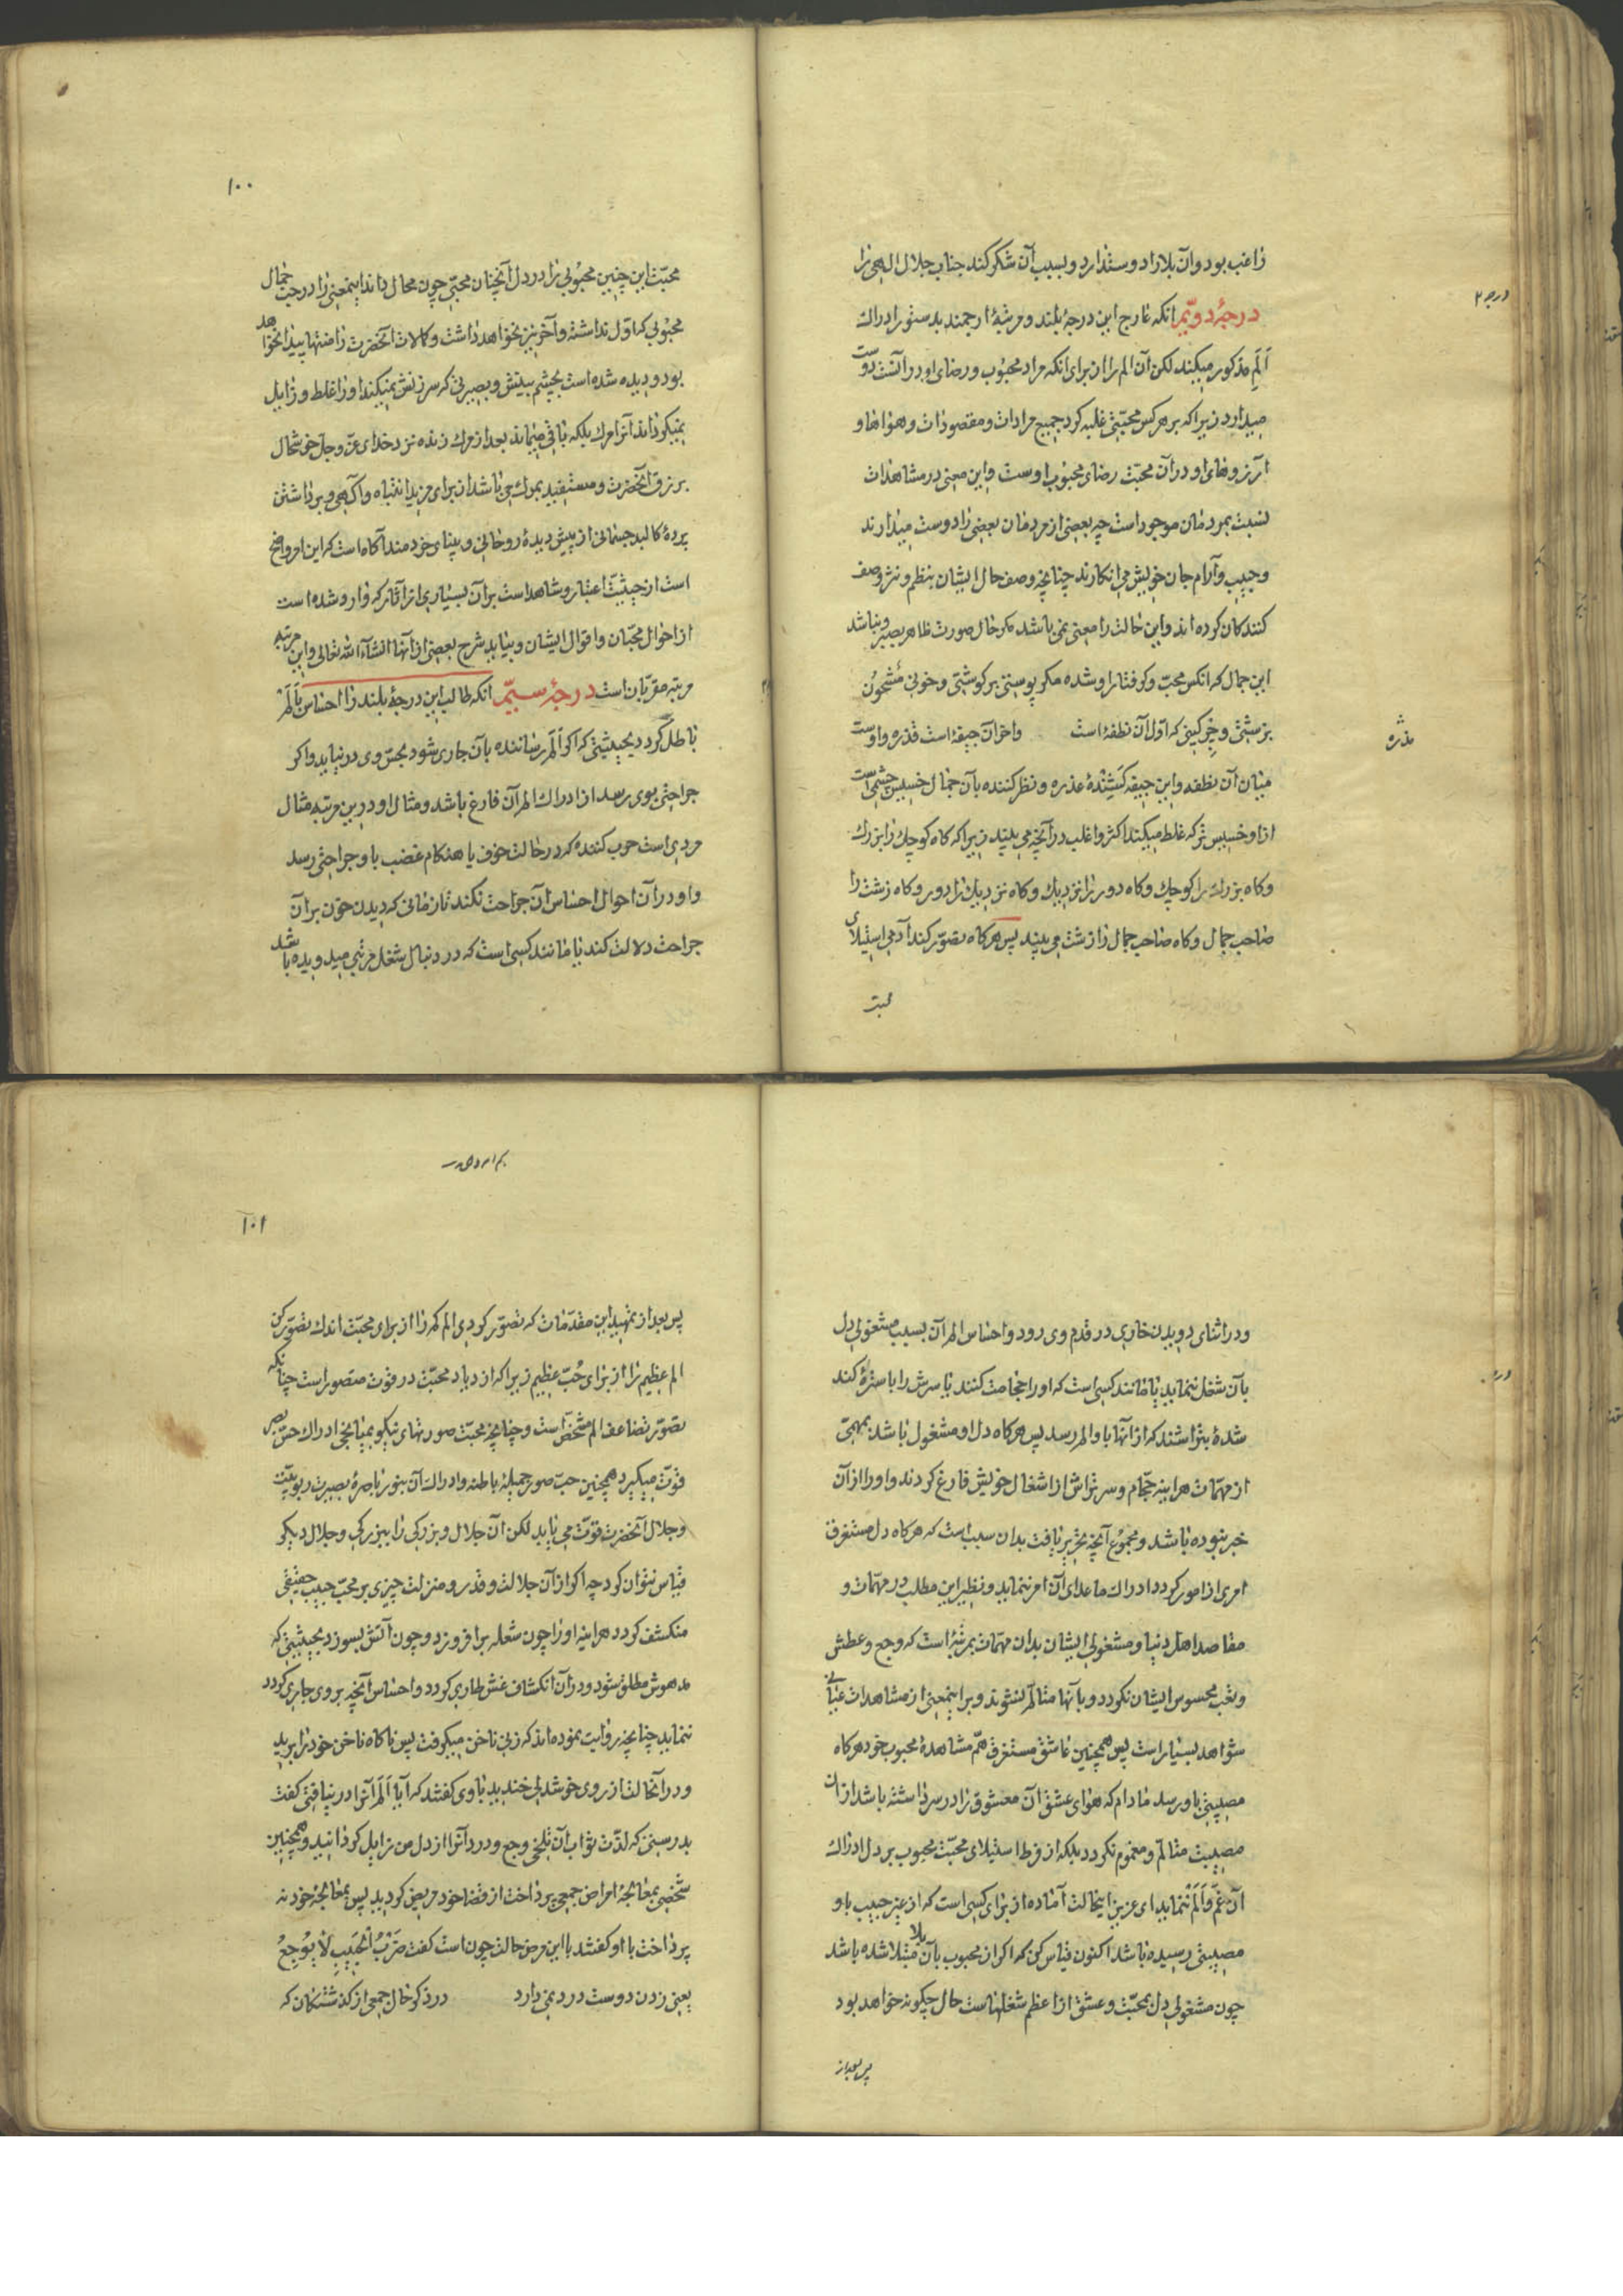 درجه ۲
راغب بود و آن بلا را دوستدارد و بسبب آن شکر کند جناب جلال الهی را
درجهٔ دویّم انکه عارج این درجهٔ بلند و مرتبهٔ ارجمند بدستور ادراك
اَلَمِ مذکور میکند لکن آن الم را از برای انکه مراد محبُوب و رضای او در آنست دوست
میدارد زیرا که بر هر کس محبّتی غلبه کرد جمیع مرادات و مقصودات و هواها و
آرزوهای او در آن محبّت رضای محبُوب اوست و این معنی در مشاهدات
نسبت بمردمان موجود است چه بعضی از مردمان بعضی را دوست میدارند
و حبیب و آرام جان خویش می انکارند چنانچه وصف حال ایشان بنظم و نثر وصف
کنندکان کرده اند و این حالت را معنی نمی باشد مکر حال صورت ظاهر ببصر و نباشد
این جمال که انکس محبّ و کرفتار او شده مکر پوستی بر کوشتی و خونی مشحُون
بزشتی و چرکینی که اول آن نطفهٔ است و اخر آن جیفهٔ است قذره و اوست
مذره
میان آن نطفه و این جیفه کشندهٔ عذره و نظر کننده بآن جمال خسیس چشمی است
از او خسیس تر که غلط میکند اکثر و اغلب در آنچه می بیند زیرا که کاه کوچك را بزرك
و کاه بزرك را کوچك و کاه دور را نزدیك و کاه نزدیك را دور و کاه زشت را
صاحب جمال و کاه صاحب جمال را زشت می بیند پس هرکاه تصوّر کند آدمی استیلای
محبّت
۱۰۰
محبّت این چنین محبُوبی را در دل آنچنان محبّی چون محال داند اینمعنی را در حبّ جمال
محبُوبی که اوّل نداشته و آخر نیز نخواهد داشت و کمالات آنحضرت را منتها پیدا نخواهد
بود و دیده شده است بچشم بینش و بصیرتی که سرزنش نمیکند او را غلط و زایل
نمیکرداند آنرا مرك بلکه باقی میماند بعد از مرك زنده نزد خدای عزّ و جلّ خوشحال
برزق آنحضرت و مستفید بمرك می باشد از برای مزید انتباه و آکهی و برداشتن
پردهٔ کالبد جسمانی از پیش دیدهٔ روحانی و بینای خردمند آکاه است که این امر واضح
است از حیثیّت اعتبار و شاهد است بر آن بسیاری از آثار که وارد شده است
از احوال محبّان و اقوال ایشان و بیاید شرح بعضی از آنها انشآء الله تعالی و این مرتبه
مرتبه مقرّبان است درجهٔ سیّم انکه طالب این درجهٔ بلند را احساس باَلَمْ
باطل کردد بحیثیّتی که اکر اَلَم رساننده بآن جاری شود بحسّ وی در نیاید و اکر
جراحتی بوی رسد از ادراك الم آن فارغ باشد و مثال او در این مرتبه مثال
مردی است حرب کننده که در حالت خوف یا هنکام غضب باو جراحتی رسد
و او در آن احوال احساس آن جراحت نکند تا زمانی که دیدن خون بر آن
جراحت دلالت کند یا مانند کسی است که در دنبال شغل مرتبی میدویده باشد
و در اثنای دویدن خاری در قدم وی رود و احساس الم آن بسبب مشغولی دل
بآن شغل ننماید یا مانند کسی است که او را حجامت کنند یا سرش را با سترهٔ کند
شدهٔ بتراشند که از آنها باو الم رسد پس هرکاه دل او مشغول باشد بمهمّی
از مهمّات هراینه حجّام و سرتراش از اشغال خویش فارغ کردند و او را از آن
خبر نبوده باشد و مجمُوع آنچه تحریر یافت بدان سبب است که هرکاه دل مستغرق
امری از امور کردد ادراك ماعدای آن امر ننماید و نظیر این مطلب در مهمّات و
مقاصد اهل دنیا و مشغولی ایشان بدان مهمّات بمرتبهٔ است که وجع و عطش
و تعب محسوس ایشان نکردد و بآنها متالّم نشوند و بر اینمعنی از مشاهدات عیانی
شواهد بسیار است پس همچنین عاشق مستغرق همّ مشاهدهٔ محبوب خود هرکاه
مصیبتی باو رسد مادام که هوای عشق آن معشوق را در سر داشته باشد از آن
مصیبت متالّم و مغموم نکردد بلکه از فرط استیلای محبّت محبوب بر دل ادراك
آن غمّ و اَلَم ننماید ای عزیز اینحالت آماده از برای کسی است که از غیر حبیب باو
مصیبتی رسیده باشد اکنون قیاس کن که اکر از محبوب بآن بلا مبتلا شده باشد
چون مشغولی دل بمحبّت و عشق از اعظم شغلهاست حال چکونه خواهد بود
پس بعد از
۱۰۱
پس بعد از تمهید این مقدّمات که تصوّر کردی الم کم را از برای محبّت اندك تصوّر کن
الم عظیم را از برای حُبّ عظیم زیرا که ازدیاد محبّت در قوت متصور است چنانکه
تصوّر تضاعف الم مشخّص است و چنانچه محبّت صورتهای نیکو بمیانجی ادراك حسّ بصر
قوّت میکیرد همچنین حبّ صور جمیلهٔ باطنه و ادراك آن بنور باصرهٔ بصیرت ربوبیّت
و جلال آنحضرت قوّت می یابد لکن آن جلال و بزرکی را ببزرکی و جلال دیکر
قیاس نتوان کرد چه اکر از آن جلالت و قدر و منزلت چیزی بر محبّ حبیب حقیقی
منکشف کردد هراینه او را چون شعله برافروزد و چون آتش بسوزد بحیثیّتی که
مدهوش مطلق شود و در آن انکشاف غش طاری کردد و احساس آنچه بر وی جاری کردد
ننماید چنانچه روایت نموده اند که زنی ناخن میکرفت پس ناکاه ناخن خود را برید
و در آنحالت از روی خوشدلی خندید با وی کفتند که آیا اَلَم آنرا در نیافتی کفت
بدرستی که لذّت ثواب آن تلخی وجع و درد آنرا از دل من زایل کردانید و همچنین
شخصی بمعالجهٔ امراض جمعی پرداخت از قضا خود مریض کردید پس بمعالجهٔ خود نه
پرداخت با او کفتند با این مرض حالت چون است کفت ضَرْبُ الْحَبِیبِ لٰا یُوجِعُ
یعنی زدن دوست درد نمی دارد در ذکر حال جمعی از کذشتکان که